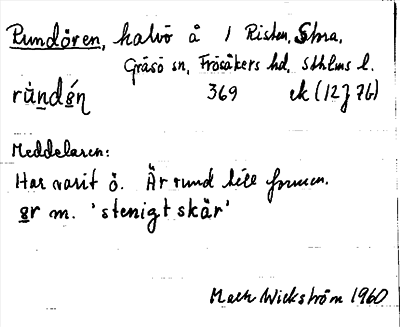 Rundören, halvö å 1 Risten, Stora,
Gräsö sn, Frösåkers hd, Sthlms l.
rùndǿn 369 ek (12J 76)
Meddelaren:
Har varit ö. Är rund till formen.
ør m. 'stenigt skär'
Mats Wickström 1960